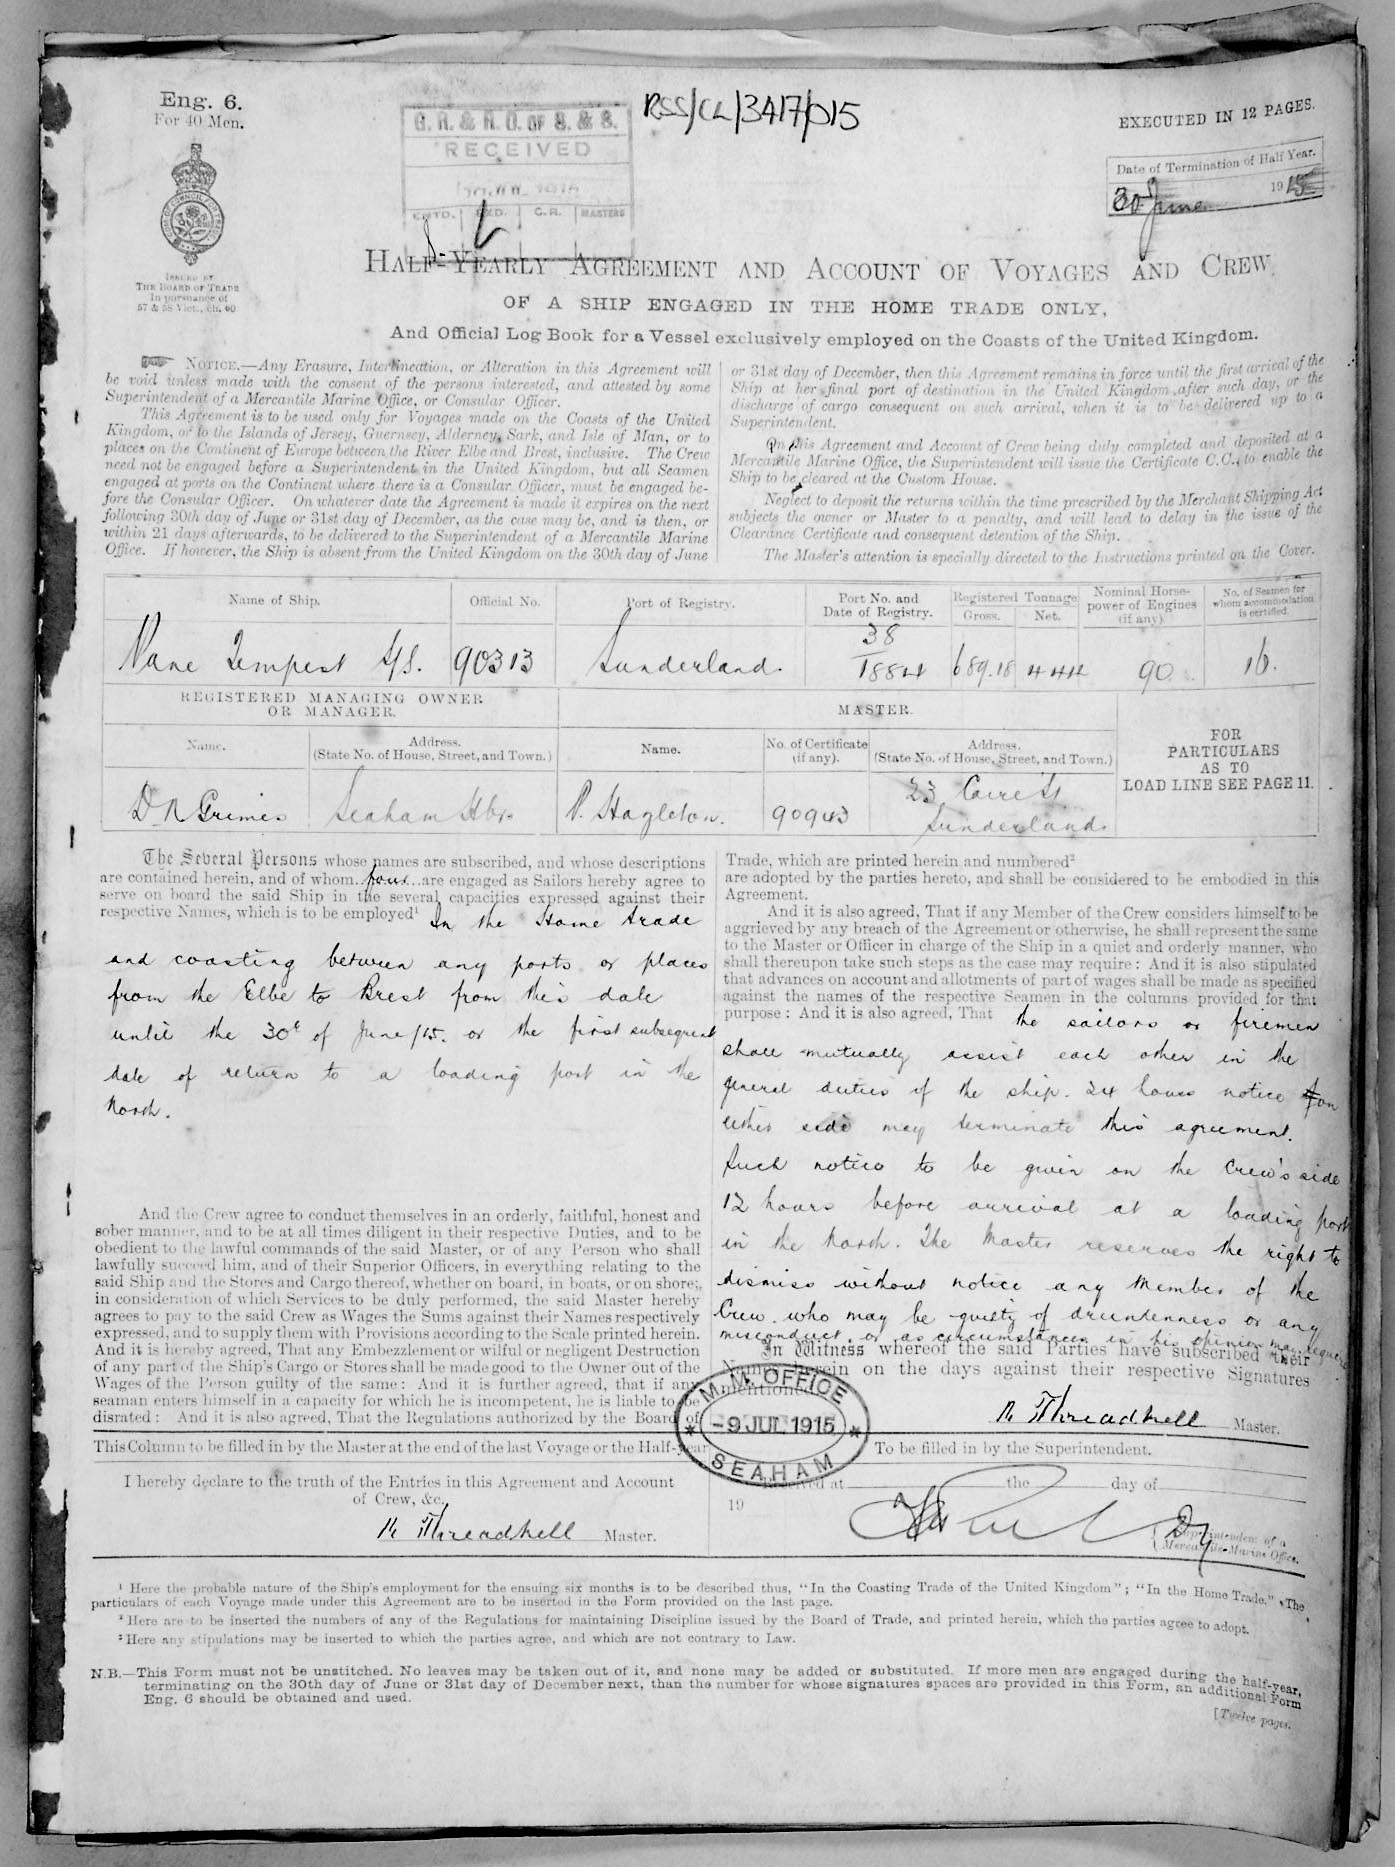 Eng. 6.
For 40 Men.
RSS/CL/3417/015
EXECUTED IN 12 PAGES.
G. R. & R. O. OF S. & S.
RECEIVED
ENTD. EXD. C.R. MASTERS
Date of Termination of Half Year.
30 June 1915
ISSUED BY
THE BOARD OF TRADE
In pursuance of
57 & 58 Vict., ch. 60
HALF-YEARLY AGREEMENT AND ACCOUNT OF VOYAGES AND CREW
OF A SHIP ENGAGED IN THE HOME TRADE ONLY,
And Official Log Book for a Vessel exclusively employed on the Coasts of the United Kingdom.
NOTICE.—Any Erasure, Interlineation, or Alteration in this Agreement will
be void unless made with the consent of the persons interested, and attested by some
Superintendent of a Mercantile Marine Office, or Consular Officer.
This Agreement is to be used only for Voyages made on the Coasts of the United
Kingdom, or to the Islands of Jersey, Guernsey, Alderney, Sark, and Isle of Man, or to
places on the Continent of Europe between the River Elbe and Brest, inclusive. The Crew
need not be engaged before a Superintendent in the United Kingdom, but all Seamen
engaged at ports on the Continent where there is a Consular Officer, must be engaged be-
fore the Consular Officer. On whatever date the Agreement is made it expires on the next
following 30th day of June or 31st day of December, as the case may be, and is then, or
within 21 days afterwards, to be delivered to the Superintendent of a Mercantile Marine
Office. If however, the Ship is absent from the United Kingdom on the 30th day of June
or 31st day of December, then this Agreement remains in force until the first arrival of the
Ship at her final port of destination in the United Kingdom after such day, or the
discharge of cargo consequent on such arrival, when it is to be delivered up to a
Superintendent.
On this Agreement and Account of Crew being duly completed and deposited at a
Mercantile Marine Office, the Superintendent will issue the Certificate C.C., to enable the
Ship to be cleared at the Custom House.
Neglect to deposit the returns within the time prescribed by the Merchant Shipping Act
subjects the owner or Master to a penalty, and will lead to delay in the issue of the
Clearance Certificate and consequent detention of the Ship.
The Master's attention is specially directed to the Instructions printed on the Cover.
Name of Ship. Official No. Port of Registry. Port No. and Date of Registry. Registered Tonnage Gross. Net. Nominal Horse-power of Engines (if any) No. of Seamen for whom accommodation is certified.
Vane Tempest S/S. 90313 Sunderland. 38/1884 689.18 444 90 16.
REGISTERED MANAGING OWNER
OR MANAGER.
MASTER.
Name. Address. (State No. of House, Street, and Town.) Name. No. of Certificate (if any). Address. (State No. of House, Street, and Town.)
FOR
PARTICULARS
AS TO
LOAD LINE SEE PAGE 11.
D N Grimes Seaham Hbr. P. Hazleton. 90943 23
Sunderland.
The Several Persons whose names are subscribed, and whose descriptions
are contained herein, and of whom four are engaged as Sailors hereby agree to
serve on board the said Ship in the several capacities expressed against their
respective Names, which is to be employed¹ In the Home trade
and coasting between any ports or places
from the Elbe to Brest from this date
until the 30t of June/15. or the first subsequent
date of return to a loading port in the
North.
And the Crew agree to conduct themselves in an orderly, faithful, honest and
sober manner, and to be at all times diligent in their respective Duties, and to be
obedient to the lawful commands of the said Master, or of any Person who shall
lawfully succeed him, and of their Superior Officers, in everything relating to the
said Ship and the Stores and Cargo thereof, whether on board, in boats, or on shore;
in consideration of which Services to be duly performed, the said Master hereby
agrees to pay to the said Crew as Wages the Sums against their Names respectively
expressed, and to supply them with Provisions according to the Scale printed herein.
And it is hereby agreed, That any Embezzlement or wilful or negligent Destruction
of any part of the Ship's Cargo or Stores shall be made good to the Owner out of the
Wages of the Person guilty of the same: And it is further agreed, that if any
seaman enters himself in a capacity for which he is incompetent, he is liable to be
disrated: And it is also agreed, That the Regulations authorized by the Board of
Trade, which are printed herein and numbered²
are adopted by the parties hereto, and shall be considered to be embodied in this
Agreement.
And it is also agreed, That if any Member of the Crew considers himself to be
aggrieved by any breach of the Agreement or otherwise, he shall represent the same
to the Master or Officer in charge of the Ship in a quiet and orderly manner, who
shall thereupon take such steps as the case may require: And it is also stipulated
that advances on account and allotments of part of wages shall be made as specified
against the names of the respective Seamen in the columns provided for that
purpose: And it is also agreed, That the sailors or firemen
shall mutually assist each other in the
general duties of the ship. 24 hours notice on
either side may terminate this agreement.
Such notice to be given on the Crew's side
12 hours before arrival at a loading port
in the North. The Master reserves the right to
dismiss without notice any Member of the
Crew who may be guilty of drunkenness or any
misconduct. or as circumstances in his opinion may require
In Witness whereof the said Parties have subscribed their
Names herein on the days against their respective Signatures
mentioned.
R Threadkell Master.
M.M. OFFICE
-9 JUL 1915
SEAHAM
This Column to be filled in by the Master at the end of the last Voyage or the Half-year
To be filled in by the Superintendent.
I hereby declare to the truth of the Entries in this Agreement and Account
of Crew, &c.
R Threadkell Master.
Received at the day of
19
Superintendent of a
Mercantile Marine Office.
¹ Here the probable nature of the Ship's employment for the ensuing six months is to be described thus, "In the Coasting Trade of the United Kingdom"; "In the Home Trade." The
particulars of each Voyage made under this Agreement are to be inserted in the Form provided on the last page.
² Here are to be inserted the numbers of any of the Regulations for maintaining Discipline issued by the Board of Trade, and printed herein, which the parties agree to adopt.
³ Here any stipulations may be inserted to which the parties agree, and which are not contrary to Law.
N.B.—This Form must not be unstitched. No leaves may be taken out of it, and none may be added or substituted. If more men are engaged during the half-year,
terminating on the 30th day of June or 31st day of December next, than the number for whose signatures spaces are provided in this Form, an additional Form
Eng. 6 should be obtained and used.
[Twelve pages.